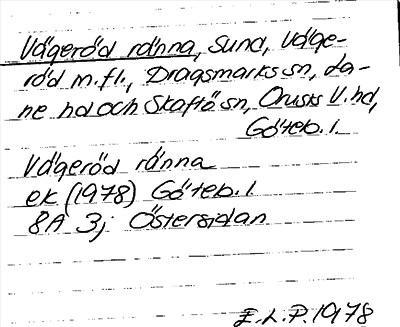 Vägeröd ränna, Sund, Väge-
röd m.fl., Dragsmarks sn, La-
ne hd och Skaftö sn, Orusts V. hd,
Göteb. l.
Vägeröd ränna
ek (1978) Göteb. l
8A 3j Östersidan
E.L.P. 1978